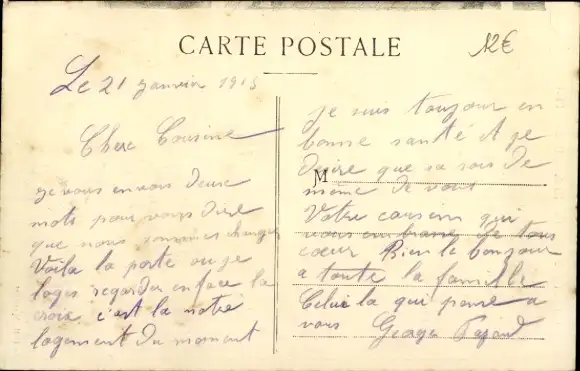 CARTE POSTALE
12€
Le 21 Janvier 1915
Chere Cousine
je vous envois deux
mots pour vous dire
que nous sommes changer
Voila la porte ou je
loges regarder en face la
croix c'est la notre
logement du moment
je suis toujour en
bonne santé et je
desire que sa sois de
M
même de vous
Votre cousin qui
vous embrasse de tous
coeur Bien le bonjour
a toute la famille
Celui la qui pense a
vous Georges